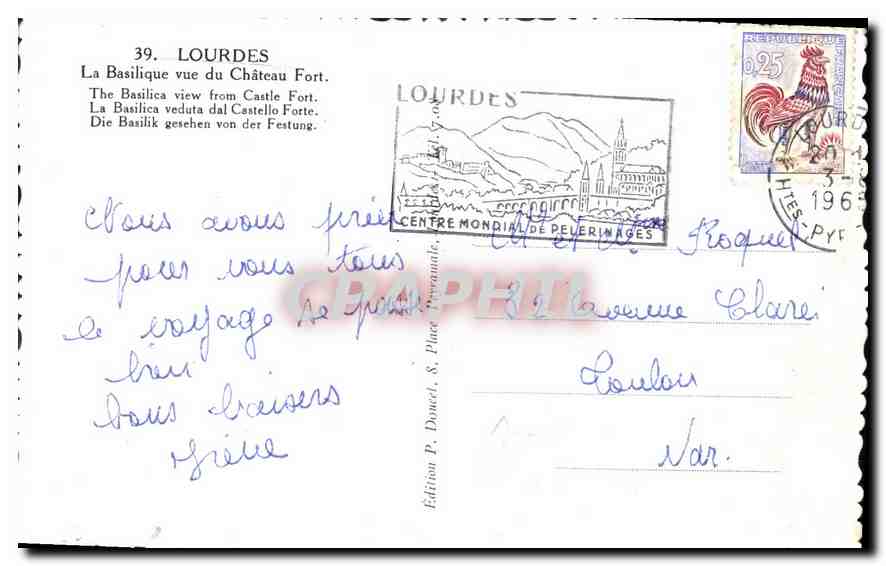 39. LOURDES
La Basilique vue du Château Fort.
The Basilica view from Castle Fort.
La Basilica veduta dal Castello Forte.
Die Basilik gesehen von der Festung.
LOURDES
CENTRE MONDIAL DE PELERINAGES
REPUBLIQUE FRANCAISE
0,25
LOURDES
20
3-
196
HTES-PYR
Nous avons prié
pour vous tous
le voyage se passe
bien
bons baisers
Irène
Édition P. Doucet, 8, Place Peyramale, Lourdes - Tél. 7.08
M et Mme Roquel
32 avenue Claret
Toulon
Var.
CPAPHIL